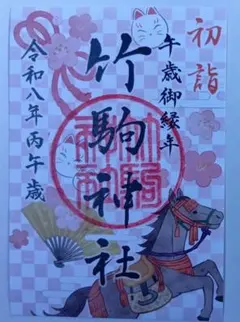 初詣
午歳御縁年
竹駒神社
令和八年丙午歳